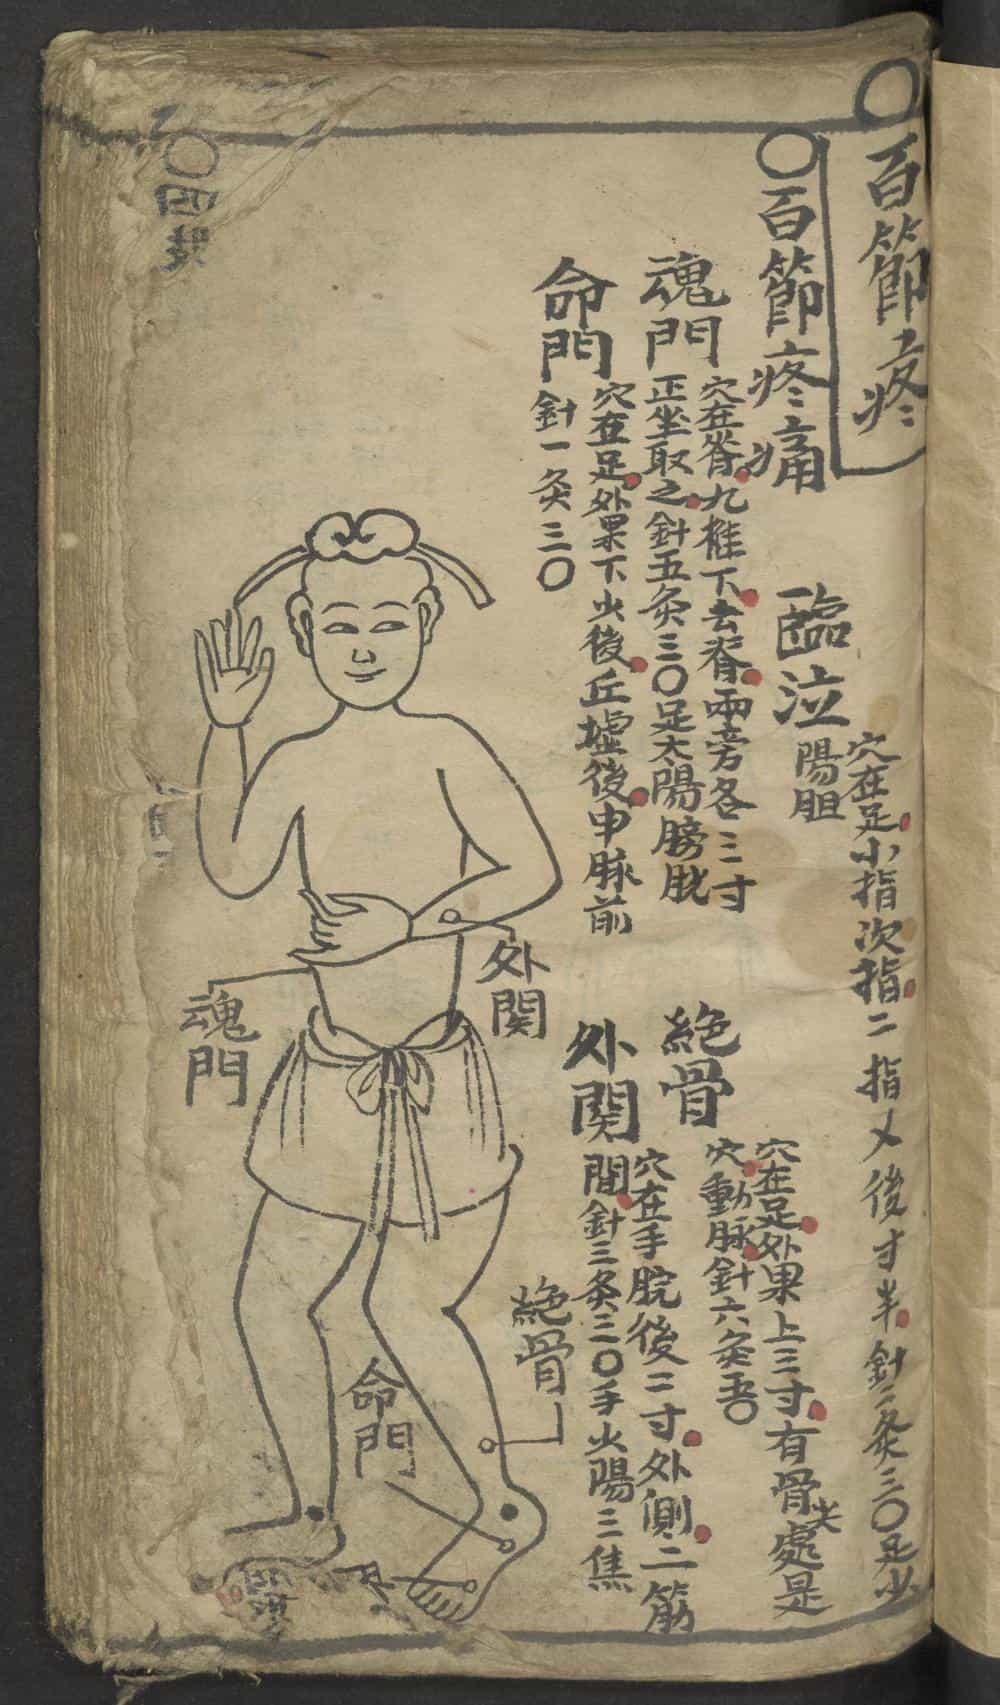 〇百節疼
〇百節疼痛
臨泣
穴在足小指次指二指乂後寸半針二灸三〇足少
陽胆
魂門
穴在脊九椎下去脊兩旁各三寸
正坐取之針五灸三〇足太陽膀胱
命門
穴在足外果下少後丘墟後申脉前
針一灸三〇
絶骨
穴在足外果上三寸有骨尖處是
穴動脉針六灸五〇
外関
穴在手脘後二寸外側二筋
間針三灸三〇手少陽三焦
外関
魂門
絶骨
命門
〇四